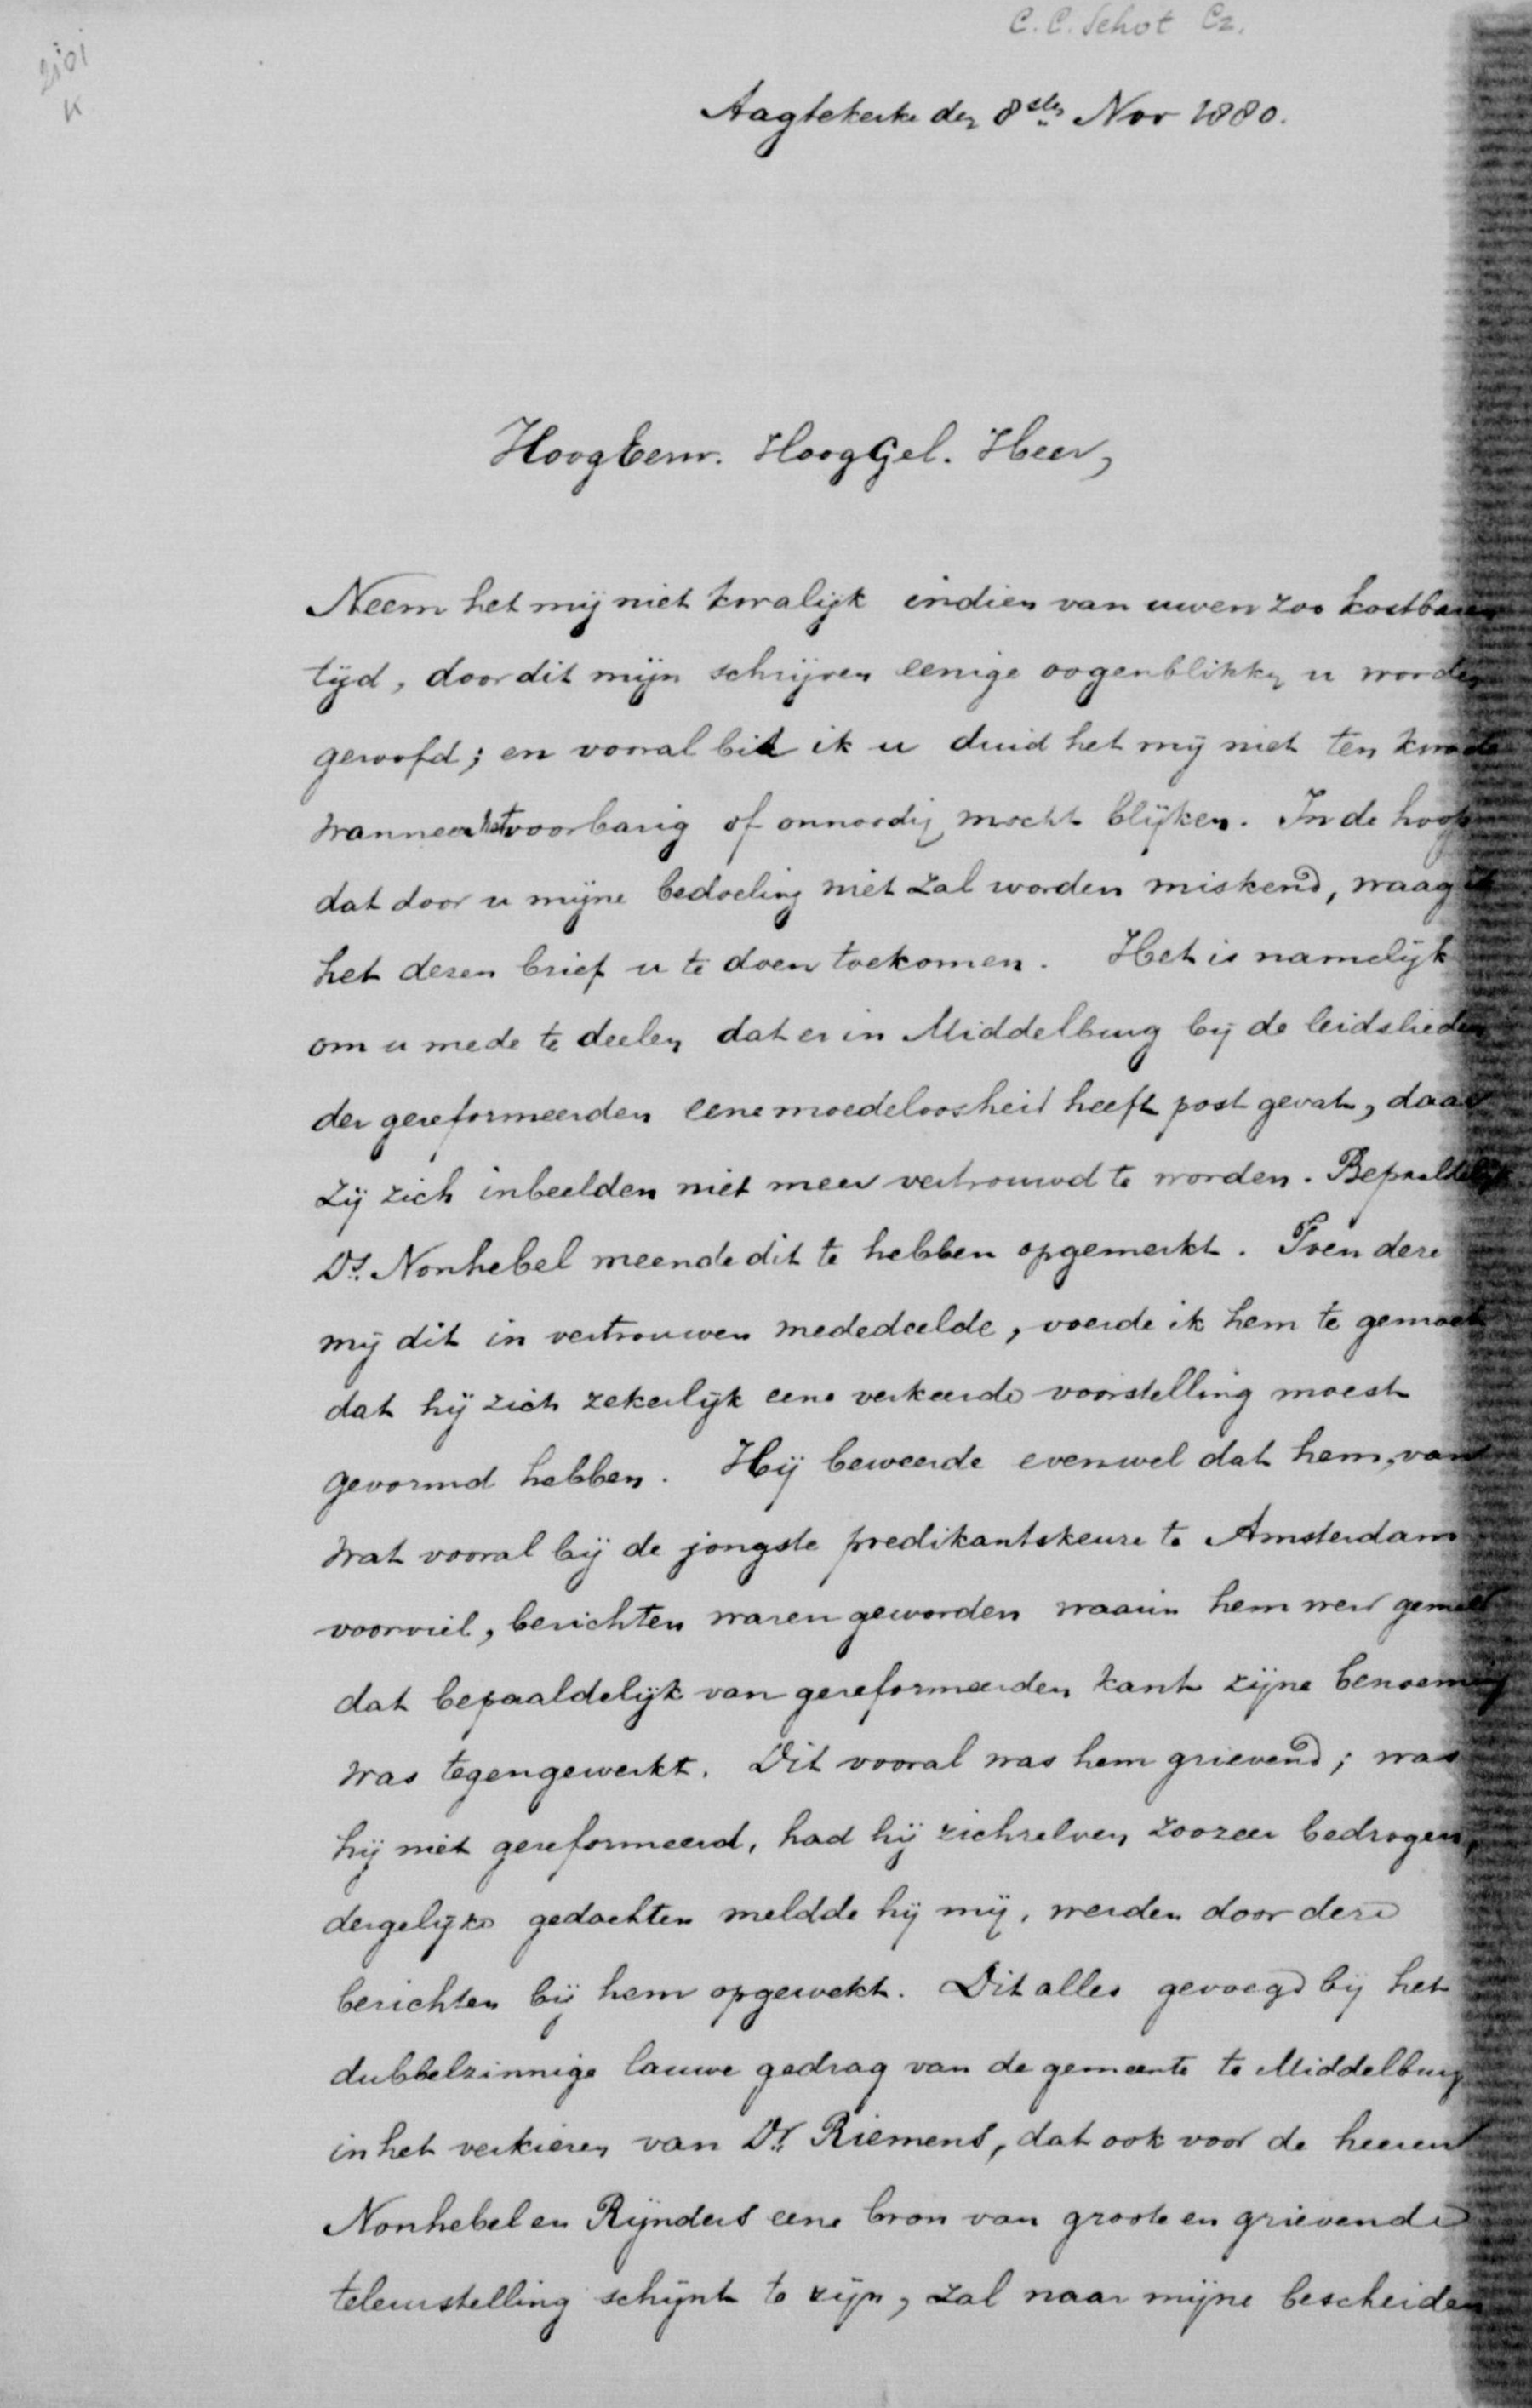 C. C. Schot Cz.
Aagtekerke den 8sten Nov 1880.
HoogEerw. HoogGel. Heer,
Neem het mij niet kwalijk indien van uwen zoo kostbaren
tijd, door dit mijn schrijven eenige oogenblikken u worden
geroofd; en vooral bid ik u duid het mij niet ten kwade
wanneer het voorbarig of onnoodig mocht blijken. In de hoop
dat door u mijne bedoeling niet zal worden miskend, waag ik
het dezen brief u te doen toekomen. Het is namelijk
om u mede te deelen dat er in Middelburg bij de leidslieden
der gereformeerden eene moedeloosheid heeft post gevat, daar
zij zich inbeelden niet meer vertrouwd te worden. Bepaaldelijk
Ds. Nonhebel meende dit te hebben opgemerkt. Toen deze
mij dit in vertrouwen mededeelde, voerde ik hem te gemoet
dat hij zich zekerlijk eene verkeerde voorstelling moest
gevormd hebben. Hij beweerde evenwel dat hem, van
wat vooral bij de jongste predikantskeuze te Amsterdam
voorviel, berichten waren geworden waarin hem werd gemeld
dat bepaaldelijk van gereformeerden kant zijne benoeming
was tegengewerkt. Dit vooral was hem grievend; was
hij niet gereformeerd, had hij zichzelven zoozeer bedrogen,
dergelijke gedachten meldde hij mij, werden door deze
berichten bij hem opgewekt. Dit alles gevoegd bij het
dubbelzinnige lauwe gedrag van de gemeente te Middelburg
in het verkiezen van Dr. Riemens, dat ook voor de heeren
Nonhebel en Rijnders eene bron van groote en grievende
teleurstelling schijnt te zijn, zal naar mijne bescheiden